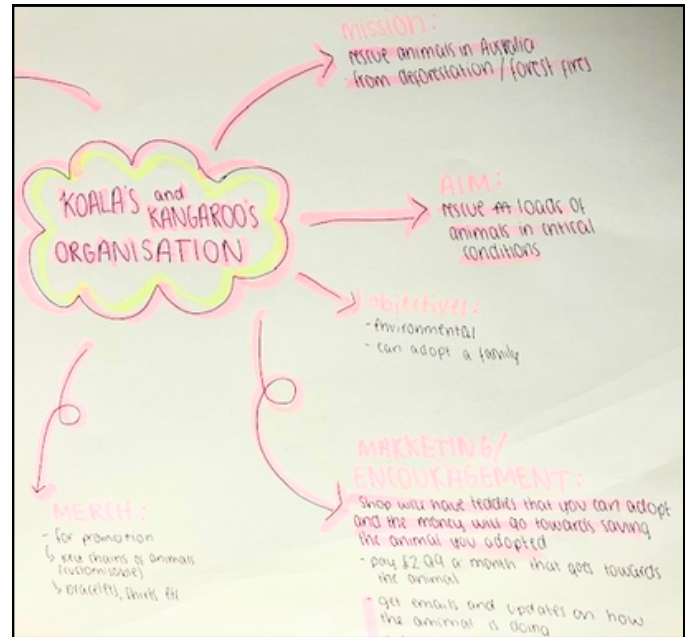 mission:
rescue animals in Australia
from deforestation / forest fires
KOALA'S and
KANGAROO'S
ORGANISATION
AIM:
rescue loads of
animals in critical
conditions
objectives:
- environmental
- can adopt a family
MARKETING/
ENCOURAGEMENT:
Shop will have teddies that you can adopt
and the money will go towards saving
the animal you adopted
- pay £2.99 a month that goes towards
the animal
get emails and updates on how
the animal is doing
MERCH:
- for promotion
↳ key chains of animals
(customisable)
↳ bracelets, shirts etc